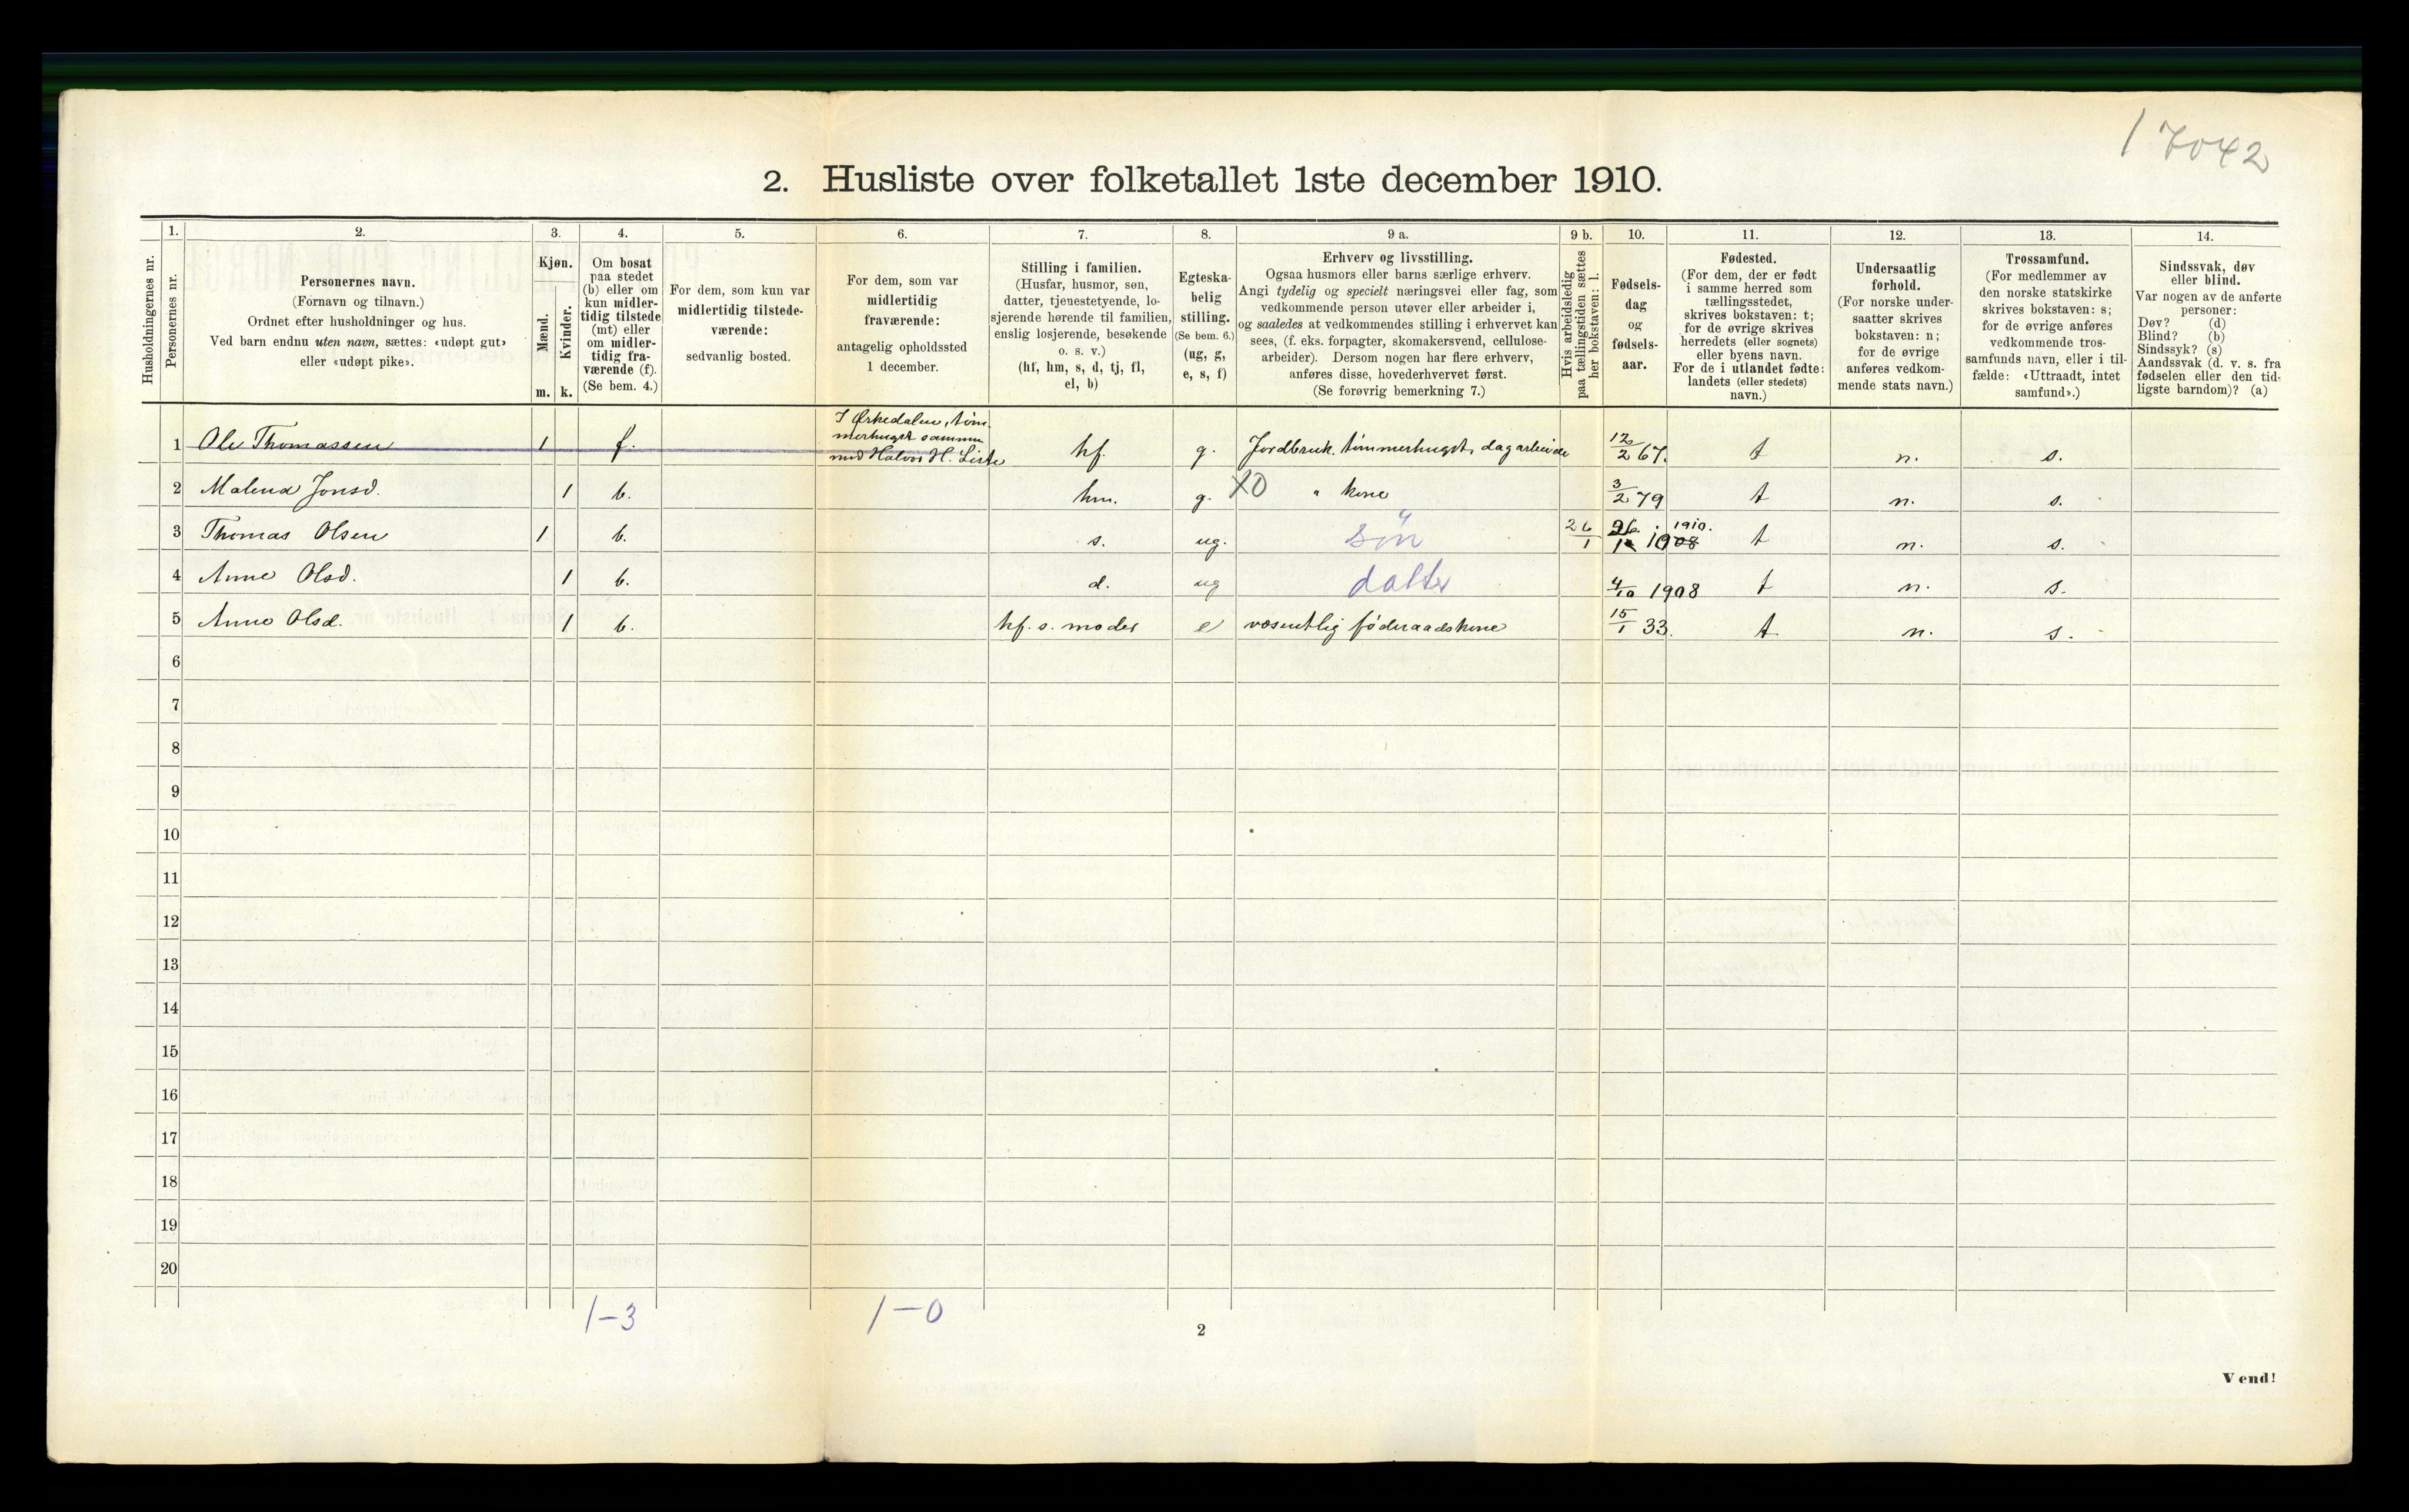 1 7042
2. Husliste over folketallet 1ste december 1910.
Husholdningernes nr.
1.
Personernes nr.
2.
Personernes navn.
(Fornavn og tilnavn.)
Ordnet efter husholdninger og hus.
Ved barn endnu uten navn, sættes: «udøpt gut»
eller «udøpt pike».
3.
Kjøn.
Mænd.
Kvinder.
m. k.
4.
Om bosat
paa stedet
(b) eller om
kun midler-
tidig tilstede
(mt) eller
om midler-
tidig fra-
værende (f).
(Se bem. 4.)
5.
For dem, som kun var
midlertidig tilstede-
værende:
sedvanlig bosted.
6.
For dem, som var
midlertidig
fraværende:
antagelig opholdssted
1 december.
7.
Stilling i familien.
(Husfar, husmor, søn,
datter, tjenestetyende, lo-
sjerende hørende til familien,
enslig losjerende, besøkende
o. s. v.)
(hf, hm, s, d, tj, fl,
el, b)
8.
Egteska-
belig
stilling.
(Se bem. 6.)
(ug, g,
e, s, f)
9 a.
Erhverv og livsstilling.
Ogsaa husmors eller barns særlige erhverv.
Angi tydelig og specielt næringsvei eller fag, som
vedkommende person utøver eller arbeider i,
og saaledes at vedkommendes stilling i erhvervet kan
sees, (f. eks. forpagter, skomakersvend, cellulose-
arbeider). Dersom nogen har flere erhverv,
anføres disse, hovederhvervet først.
(Se forøvrig bemerkning 7.)
9 b.
Hvis arbeidsledig
paa tællingstiden sættes
her bokstaven: l.
10.
Fødsels-
dag
og
fødsels-
aar.
11.
Fødested.
(For dem, der er født
i samme herred som
tællingsstedet,
skrives bokstaven: t;
for de øvrige skrives
herredets (eller sognets)
eller byens navn.
For de i utlandet fødte:
landets (eller stedets)
navn.)
12.
Undersaatlig
forhold.
(For norske under-
saatter skrives
bokstaven: n;
for de øvrige
anføres vedkom-
mende stats navn.)
13.
Trossamfund.
(For medlemmer av
den norske statskirke
skrives bokstaven: s;
for de øvrige anføres
vedkommende tros-
samfunds navn, eller i til-
fælde: «Uttraadt, intet
samfund».)
14.
Sindssvak, døv
eller blind.
Var nogen av de anførte
personer:
Døv? (d)
Blind? (b)
Sindssyk? (s)
Aandssvak (d. v. s. fra
fødselen eller den tid-
ligste barndom)? (a)
1 Ole Thomassen 1 f. I Ørkedalen, tøm-
merhugst sammen
med Halvor H. Liste hf. g. Jordbruk. tømmerhugst, dagarbeide 12/2 67. t n. s.
2 Malena Jonsd. 1 b. hm. g. XO " kone 3/2 79 t n. s.
3 Thomas Olsen 1 b. s. ug. " søn 26/1 26/1 1908 1910. t n. s.
4 Anne Olsd. 1 b. d. ug datter 4/10 1908 t n. s.
5 Anne Olsd. 1 b. hf. s. moder e væsentlig føderaadskone 15/1 33. t. n. s.
6
7
8
9
10
11
12
13
14
15
16
17
18
19
20
1-3 1-0
2
Vend!